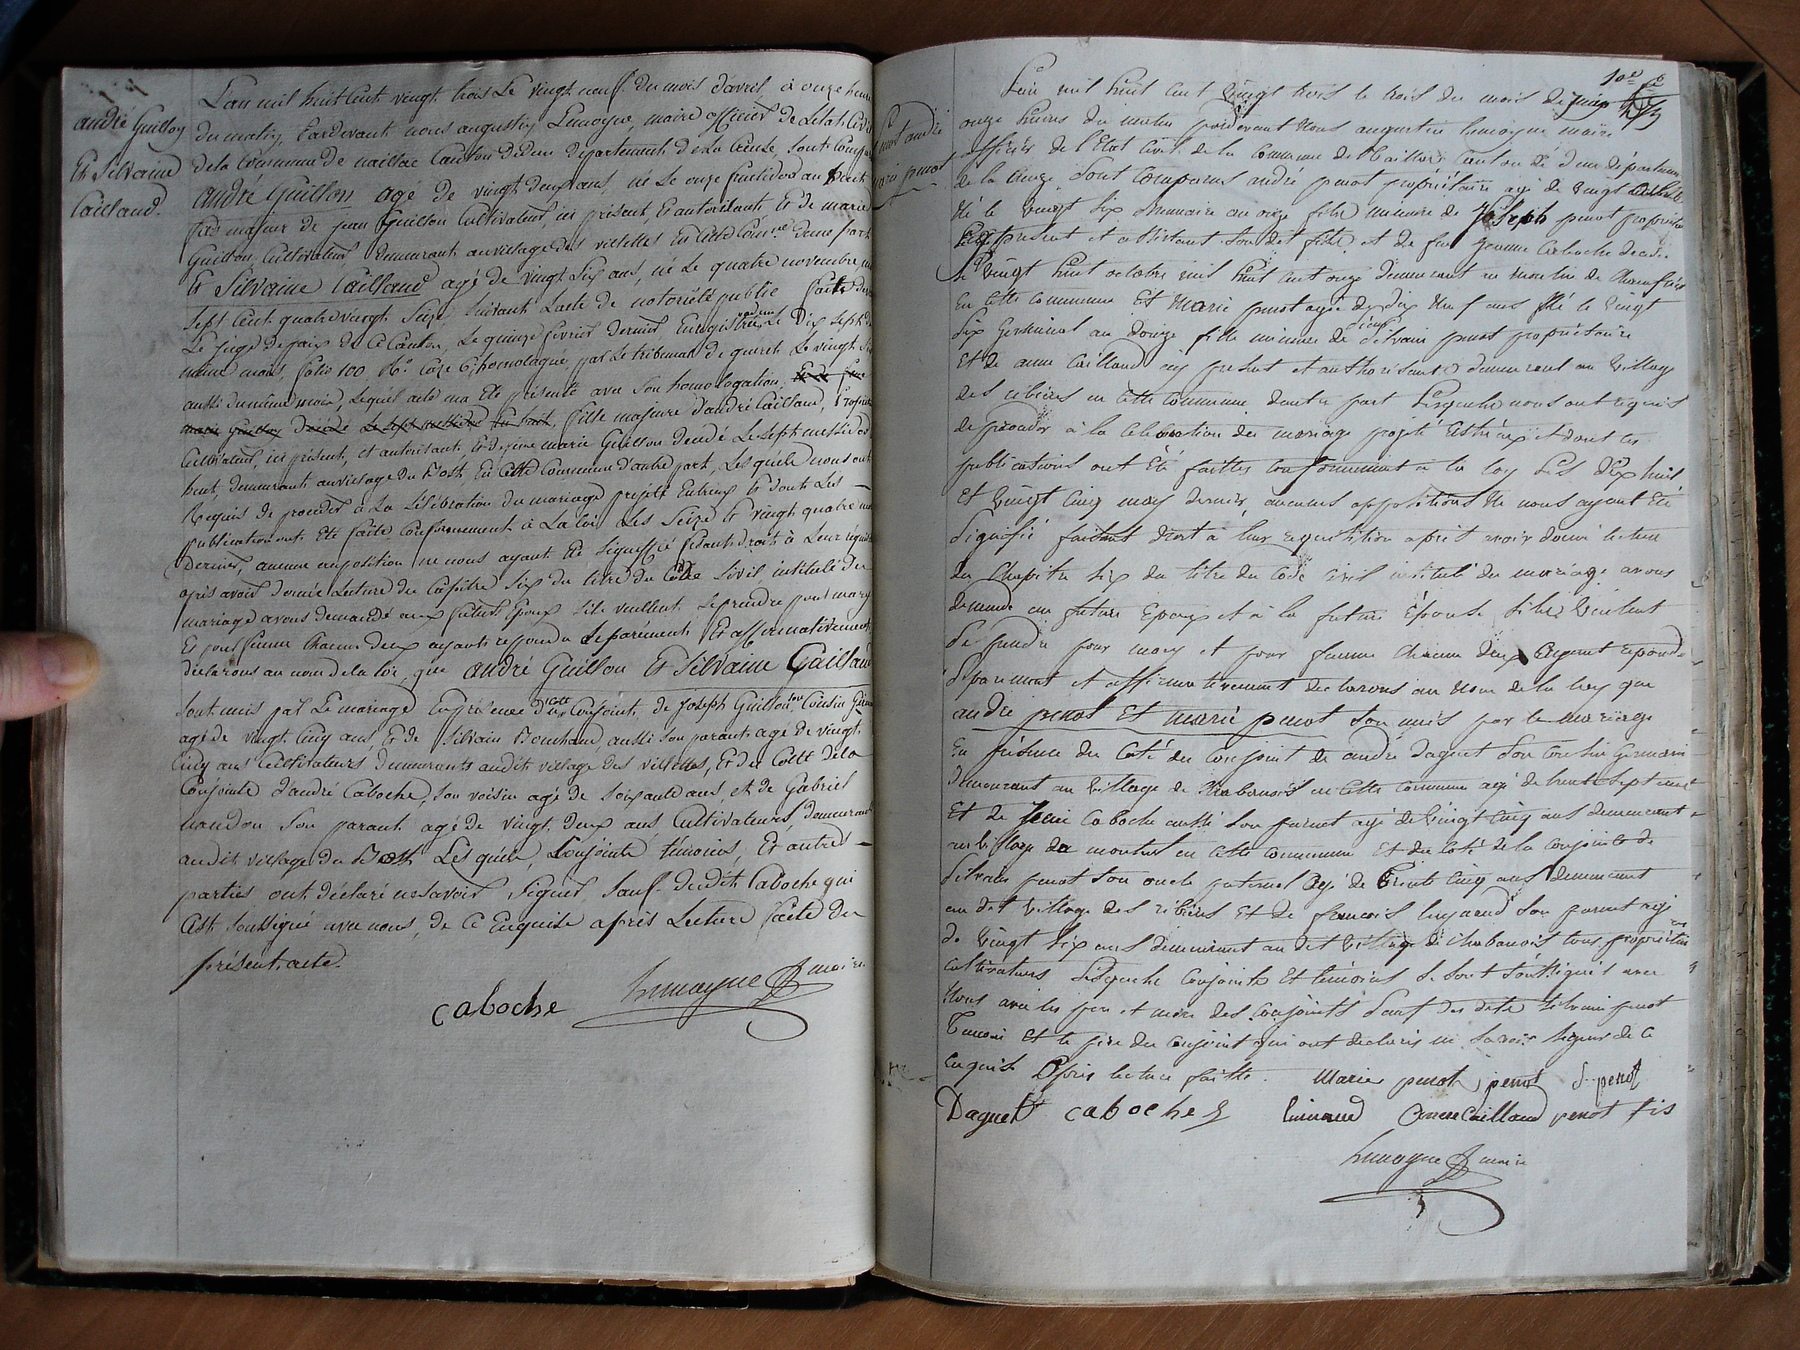 andré Guillon
Et Silvaine
Caillaud.
L'an mil huit cent vingt trois Le vingt neuf du mois d'avril, à onze heures
du matin, Pardevant nous augustin Limoyne, maire officier de L'état Civil
de la Commune de naillac Canton de dun département de la Creuse, sont comparus
andré Guillon agé de vingt deux ans, né Le onze fructidor an huit
fils majeur de jean Guillon Cultivateur, ici présent Et autorisant Et de marie
Guillon, Cultivateurs demeurant au village des villettes En cette Comune d'une part
Et Silvaine Caillaud agé de vingt Six ans, né Le quatre novembre mil
Sept Cent quatrevingt Seize, Suivant L'acte de notoriété public faite devant
Le juge de paix de Ce Canton, Le quinze fevrier dernier Enregistré Le Dix Sept du
même mois, folio 100 homologué, par Le tribunal de gueret Le vingt
aussi du même mois, Lequel acte m'a Eté présenté avec son homologation,
marie Guillon décédé Le Sept messidor an huit, fille majeure d'andré Caillaud, Propriétaire
Cultivateur, ici présent, et autorisant, Et de feue marie Guillon décédé Le Sept messidor an
huit, demeurant au village du Bosth En Cette Commune d'autre part, Lesquels nous ont
Requis de procéder à La Célébration du mariage projetté Entreux Et dont Les
publications ont Eté faite Conformement à La loi Les Seize Et vingt quatre
Dernier, aucune oposition ne nous ayant Eté Signiffié fesant droit à Leur réquisition
après avoir donnée Lecture du Capitre Six du titre du Code Civil, intitulé du
mariage avons demandé aux futurs Epoux S'ils veullent Se prendre pour mary
Et pour femme chacun deux ayant repondu Séparément Et affirmativement
déclarons au nom de la loi, que andré Guillon Et Silvaine Caillaud
Sont unis par Le mariage En présence du Coté du Conjoint, de joseph Guillon Son Cousin Germain
agé de vingt Cinq ans, Et de Silvain Bouchaud, aussi Son parant agé de vingt
Cinq ans Cultivateurs demeurants audit village des villettes, Et du Côté de la
Conjointe d'andré Caboche, Son voisin agé de Soixante ans, et de Gabriel
naudon Son parant agé de vingt deux ans Cultivateurs, demeurant
audit village du Bosth Lesquels, Conjointe témoins, Et autres
parties ont déclaré ne Savoir Signer, Sauf ledit Caboche qui
Est Soussigné avec nous, de Ce Enquise après Lecture faite du
présent acte.
caboche Limoyne maire
10e
penot andré
marie penot
L'an mil huit cent vingt trois le trois du mois de juin
onze heures du matin pardevant Nous augustin limoyne maire
officier de l'Etat Civil de la Commune de Naillac Canton de dun département
de la Creuse, Sont Comparus andré penot propriétaire agé de vingt
Né le vingt Six Brumaire an onze fils mineur de Joseph penot propriétaire
présent et assistant Son dit fils et de feu Caboche décédée
le vingt huit octobre mil huit Cent onze demeurant au moulin de
En Cette Commune Et Marie penot agée de dix Neuf ans Né le vingt
Six Germinal an douze fille mineure de Silvain penot propriétaire
Et de anne Caillaud cy présent et authorisant demeurant au village
des ribiéres en Cette Commune dautre part Lesquels nous ont requis
de procéder à la Célébration du mariage projeté Entr'eux et dont les
publications ont Eté faittes Conformement à la loy Les Dix huit
Et vingt Cinq may dernier, aucunes oppositions Ne nous ayant Eté
Signifié faisant droit à leur requisition après avoir donné lecture
du Chapitre Six du titre du Code Civil intitulé du mariage avons
demandé au futur Epoux et à la future Epouse S'ils Veulent
Se prendre pour mary et pour femme Chacun deux Ayant repondu
Séparement et affirmativement declarons au Nom de la loy que
andré penot Et marie penot Son unis par le mariage
En présence du Coté du Conjoint de andré daguet Son Cousin Germain
demeurant au village de Chabanois en Cette Commune agé de trente Sept ans
Et de Caboche aussi Son parent agé de Vingt Cinq ans demeurant
au village du en Cette Commune Et du Coté de la Conjointe de
Silvain penot Son oncle paternel Agé de Trente Cinq ans demeurant
au dit village des ribiéres Et de francois Son parent agé
de Vingt Six ans demeurant au dit Village de Chabanois tous propriétaires
cultivateurs Lesquels Conjoints Et témoins Se Sont Soussignés avec
Nous avec les pere et mere des Conjoints Sauf Silvain penot
Temoin Et le pere du Conjoint qui ont declarés ne Savoir Signer de ce
enquis Après lecture faitte. Marie penot j penot S penot
Daguet caboche anne Caillaud penot fis
Limoyne maire